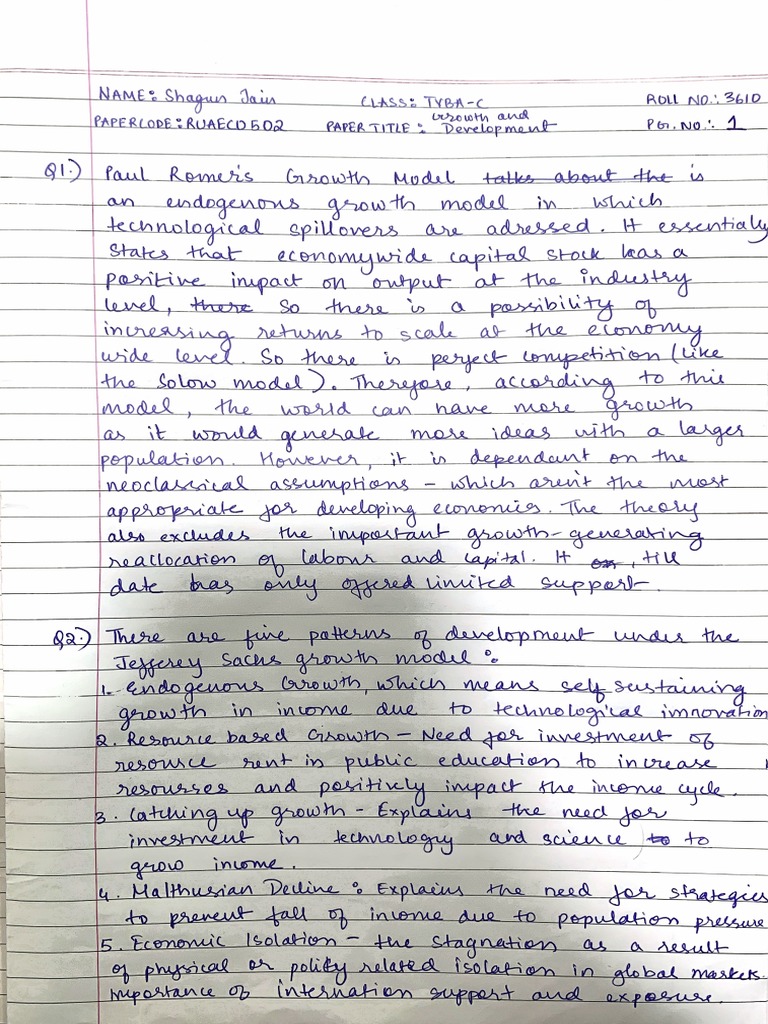 NAME: Shagun Jain CLASS: TYBA-C ROLL NO.: 3610
PAPERCODE: RUAECD502 PAPER TITLE: Growth and Development PG. NO.: 1
Q1.) Paul Romer's Growth Model talks about the is
an endogenous growth model in which
technological spillovers are adressed. It essentially
states that economywide capital stock has a
positive impact on output at the industry
level, there so there is a possibility of
increasing returns to scale at the economy
wide level. So there is perfect competition (like
the Solow model). Therefore, according to this
model, the world can have more growth
as it would generate more ideas with a larger
population. However, it is dependant on the
neoclassical assumptions - which aren't the most
appropriate for developing economies. The theory
also excludes the important growth-generating
reallocation of labour and capital. It , till
date has only offered limited support.
Q2.) There are five patterns of development under the
Jefferey Sachs growth model :
1. Endogenous Growth, which means self sustaining
growth in income due to technological imnovation
2. Resource based Growth - Need for investment of
resource rent in public education to increase
resourses and positively impact the income cycle.
3. Catching up growth - Explains the need for
investment in technology and science to to
grow income.
4. Malthusian Decline : Explains the need for strategies
to prevent fall of income due to population pressure
5. Economic Isolation - the stagnation as a result
of physical or polity related isolation in global markets.
Importance of internation support and exposure.